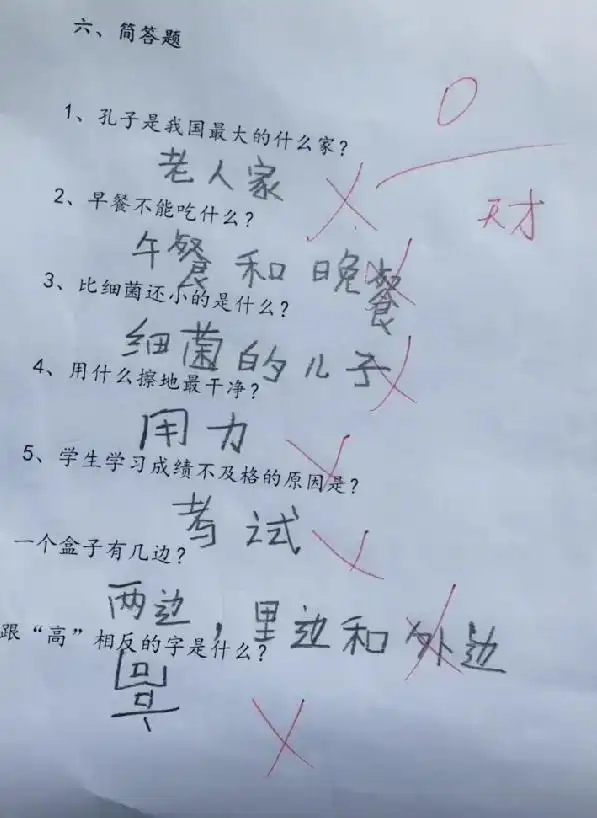 六、简答题
0
1、孔子是我国最大的什么家？
老人家
天才
2、早餐不能吃什么？
午餐和晚餐
3、比细菌还小的是什么？
细菌的儿子
4、用什么擦地最干净？
用力
5、学生学习成绩不及格的原因是？
考试
一个盒子有几边？
两边，里边和外边
跟“高”相反的字是什么？